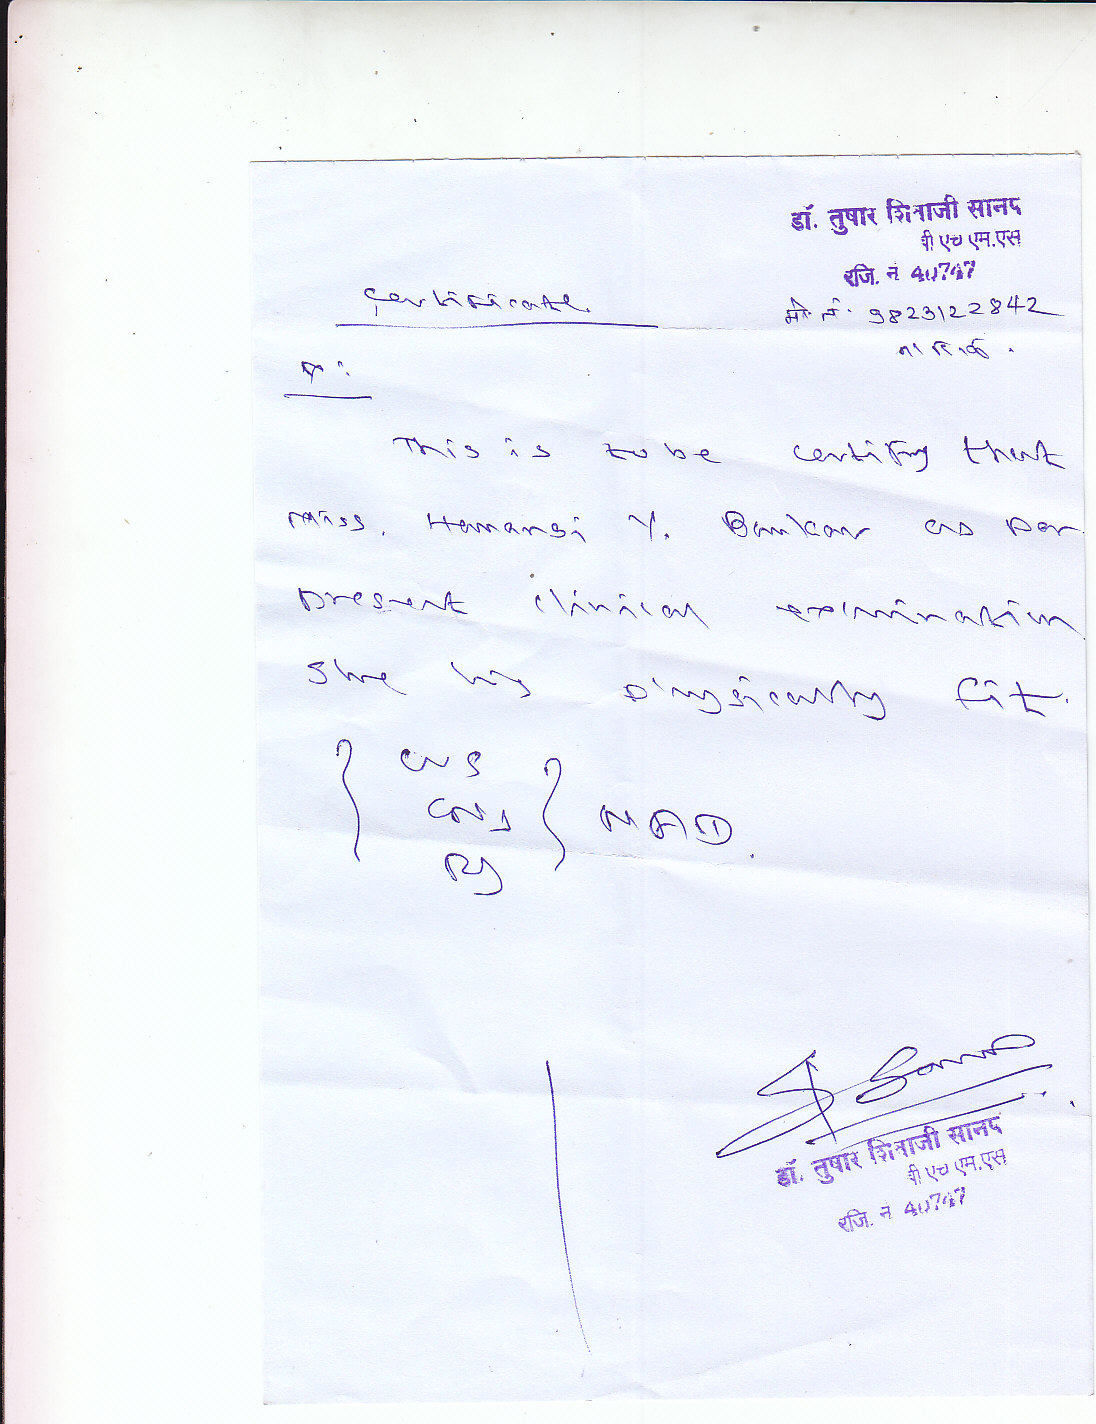 डॉ. तुषार शिवाजी सानप
बी एच एम.एस
रजि. नं 40747
मो. नं. 9823122842
नाशिक.
Certificate
This is to be certify that
Miss. Hemansi Y. Bankar as per
present clinical examination
She is physically fit.
CVS
CNS
RS
NAD.
डॉ. तुषार शिवाजी सानप
बी एच एम.एस
रजि. नं 40747